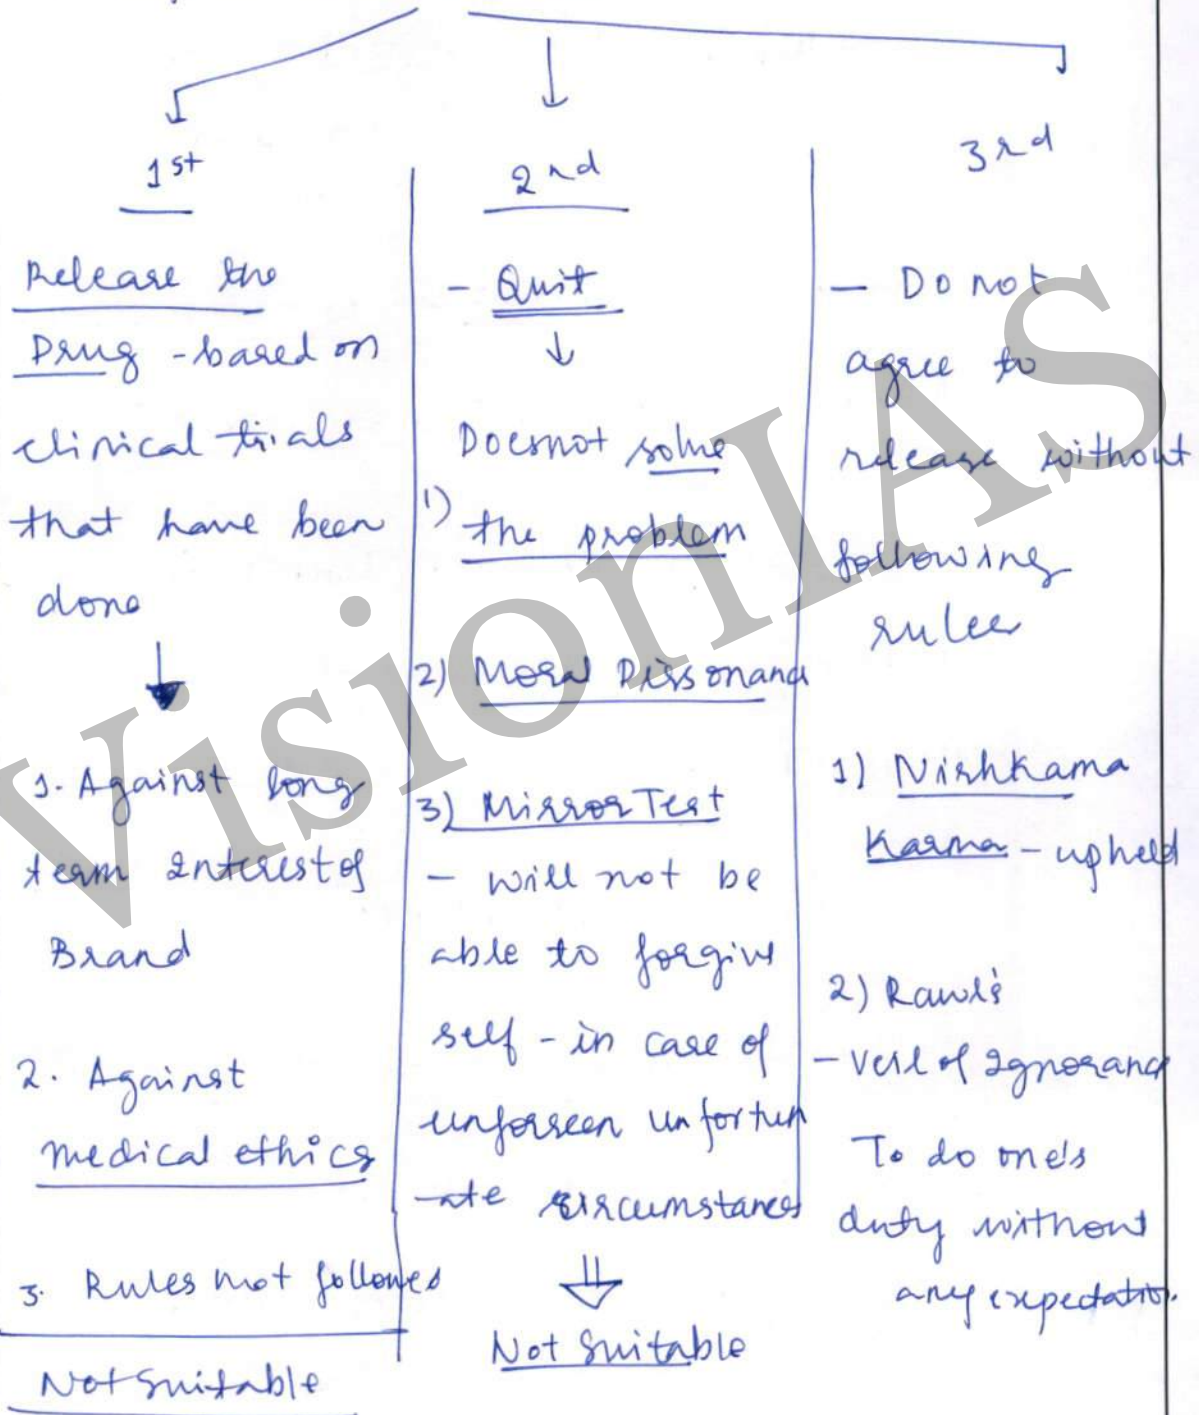 1st
Release the
Drug - based on
clinical trials
that have been
done
1. Against long
term Interest of
Brand
2. Against
medical ethics
3. Rules not followed
Not Suitable
2nd
- Quit
Doesnot solve
1) the problem
2) Moral Dissonance
3) Mirror Test
- will not be
able to forgive
self - in case of
unforseen unfortun
-ate circumstances
Not Suitable
3rd
- Do not
agree to
release without
following
rules
1) Nishkama
Karma - upheld
2) Rawl's
- Veil of Ignorance
To do one's
duty without
any expectation.
VisionIAS